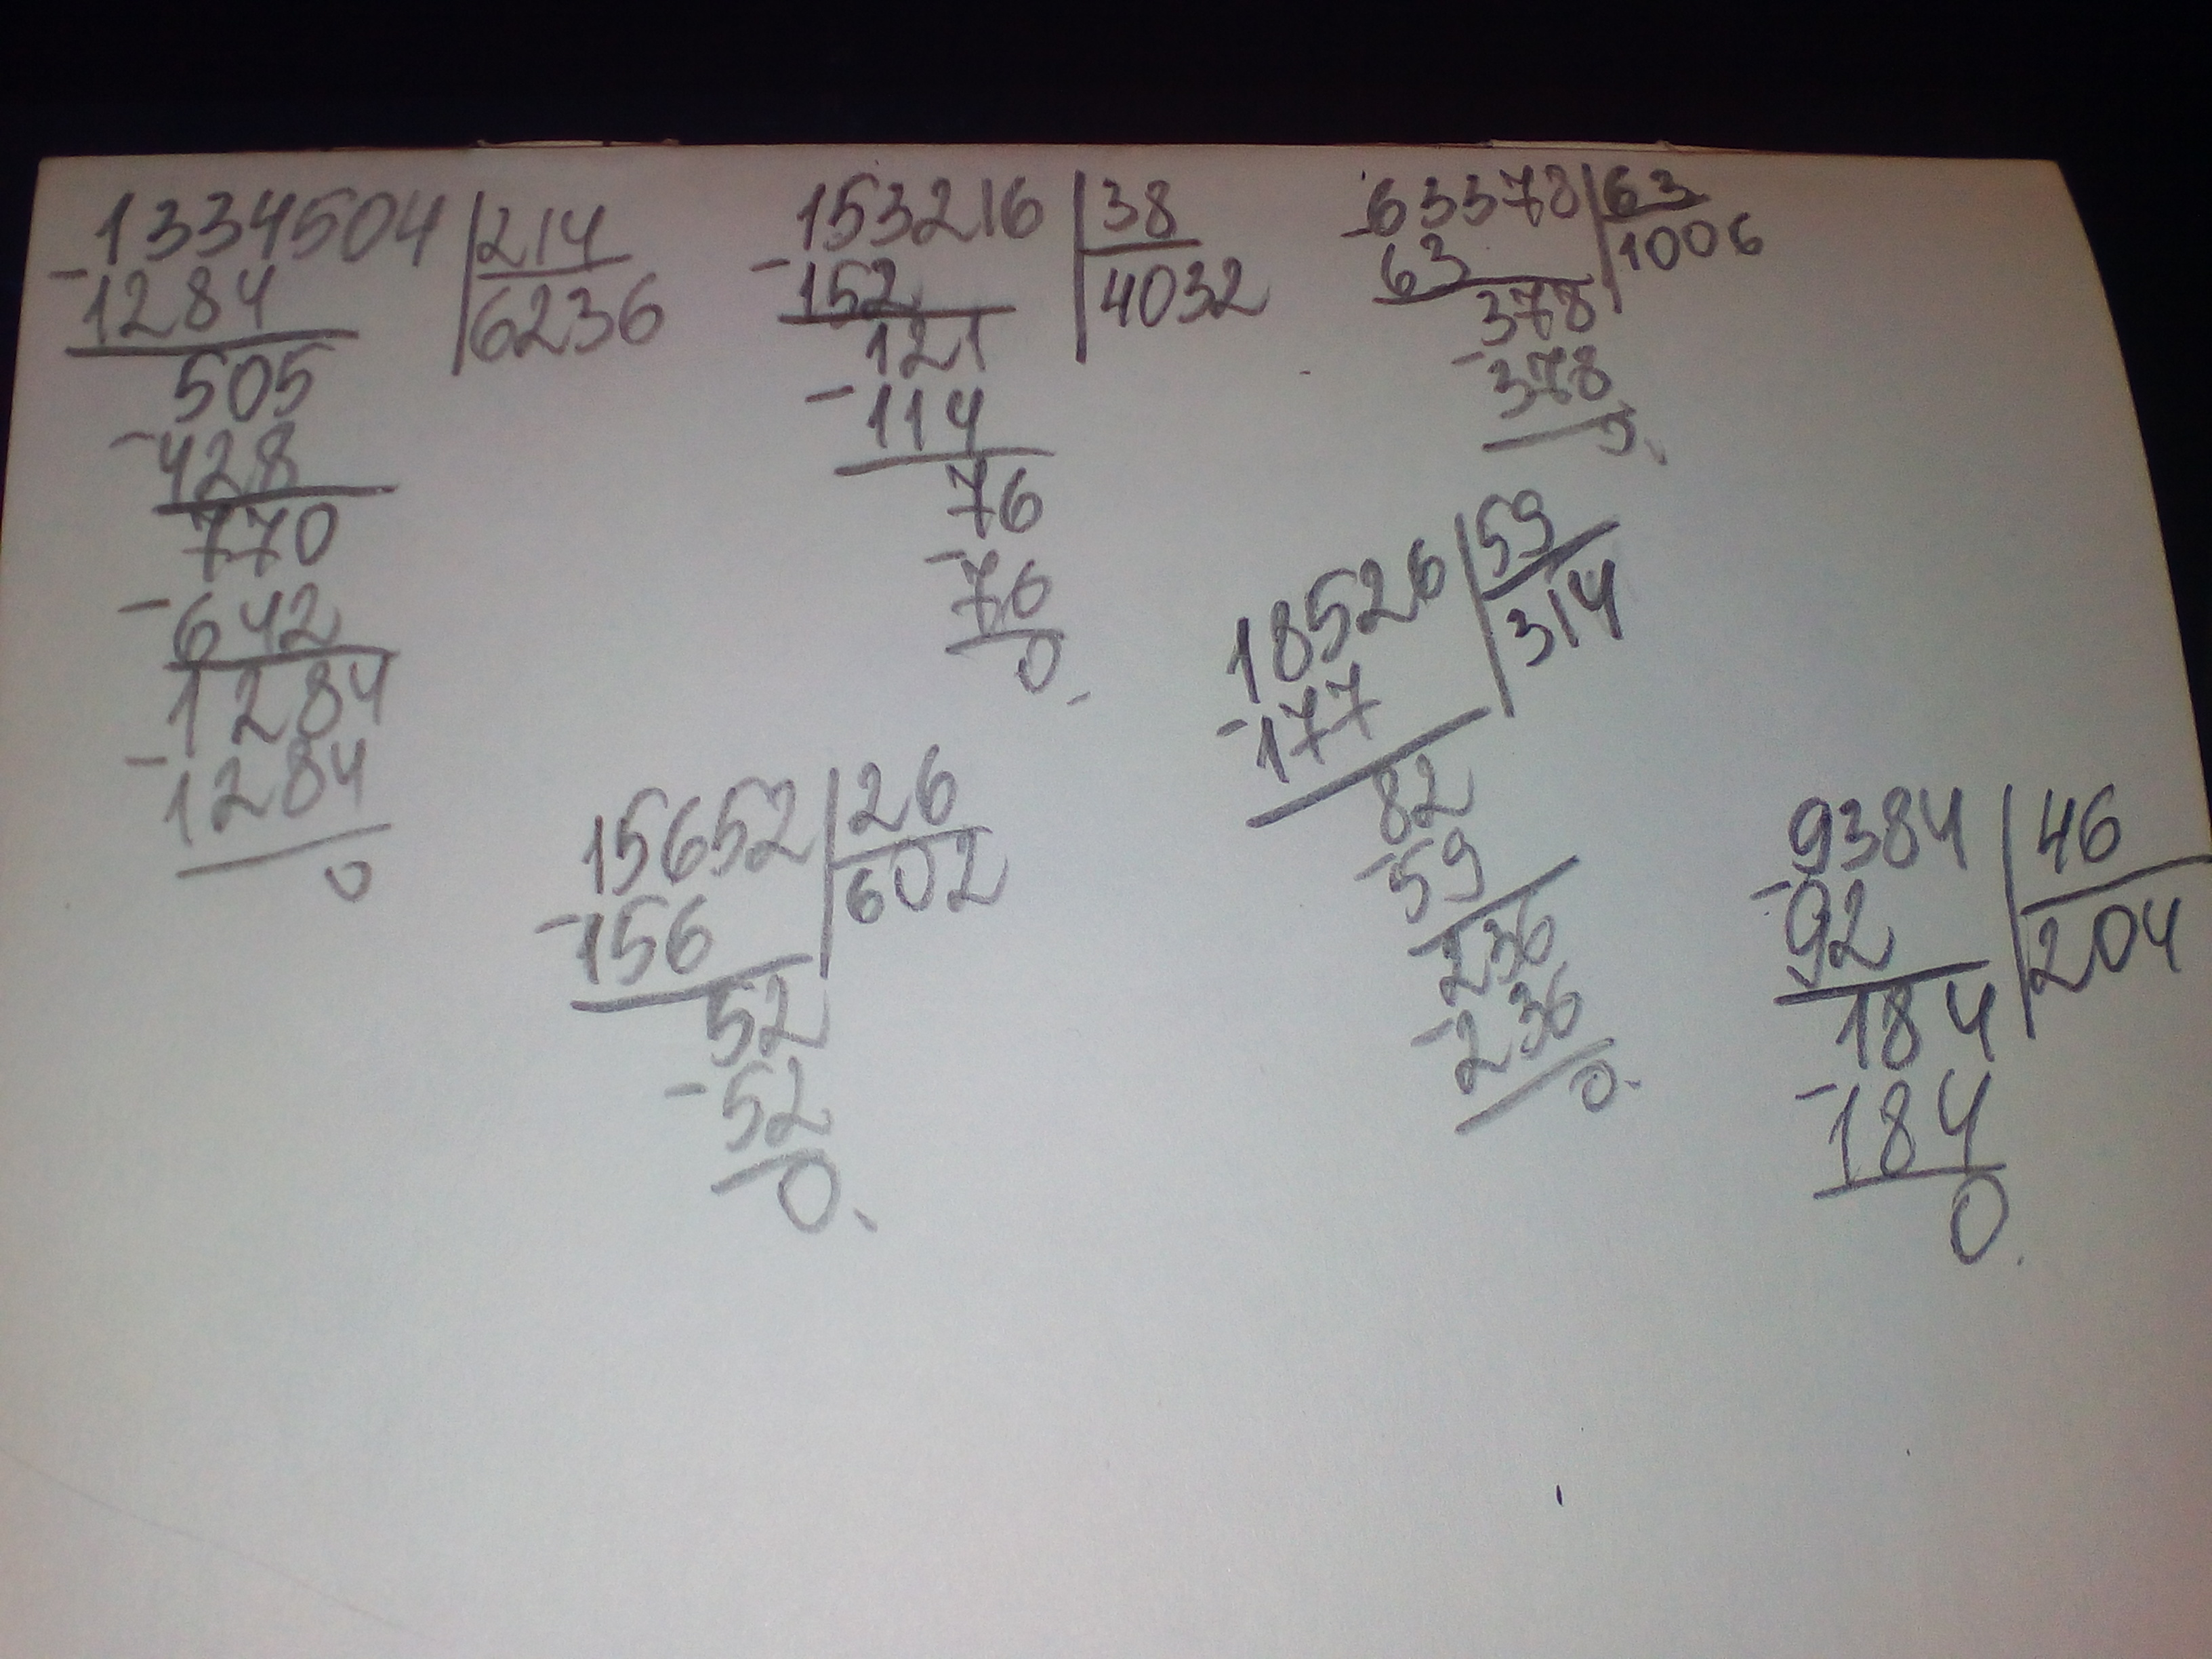 1334504 214
- 1284 6236
505
- 428
770
- 642
1284
- 1284
0
153216 38
- 152 4032
121
- 114
76
- 76
0.
- 63378 63
63 1006
378
- 378
0.
18526 59
- 177 314
82
- 59
236
- 236
0.
15652 26
- 156 602
52
- 52
0.
9384 46
- 92 204
184
- 184
0.